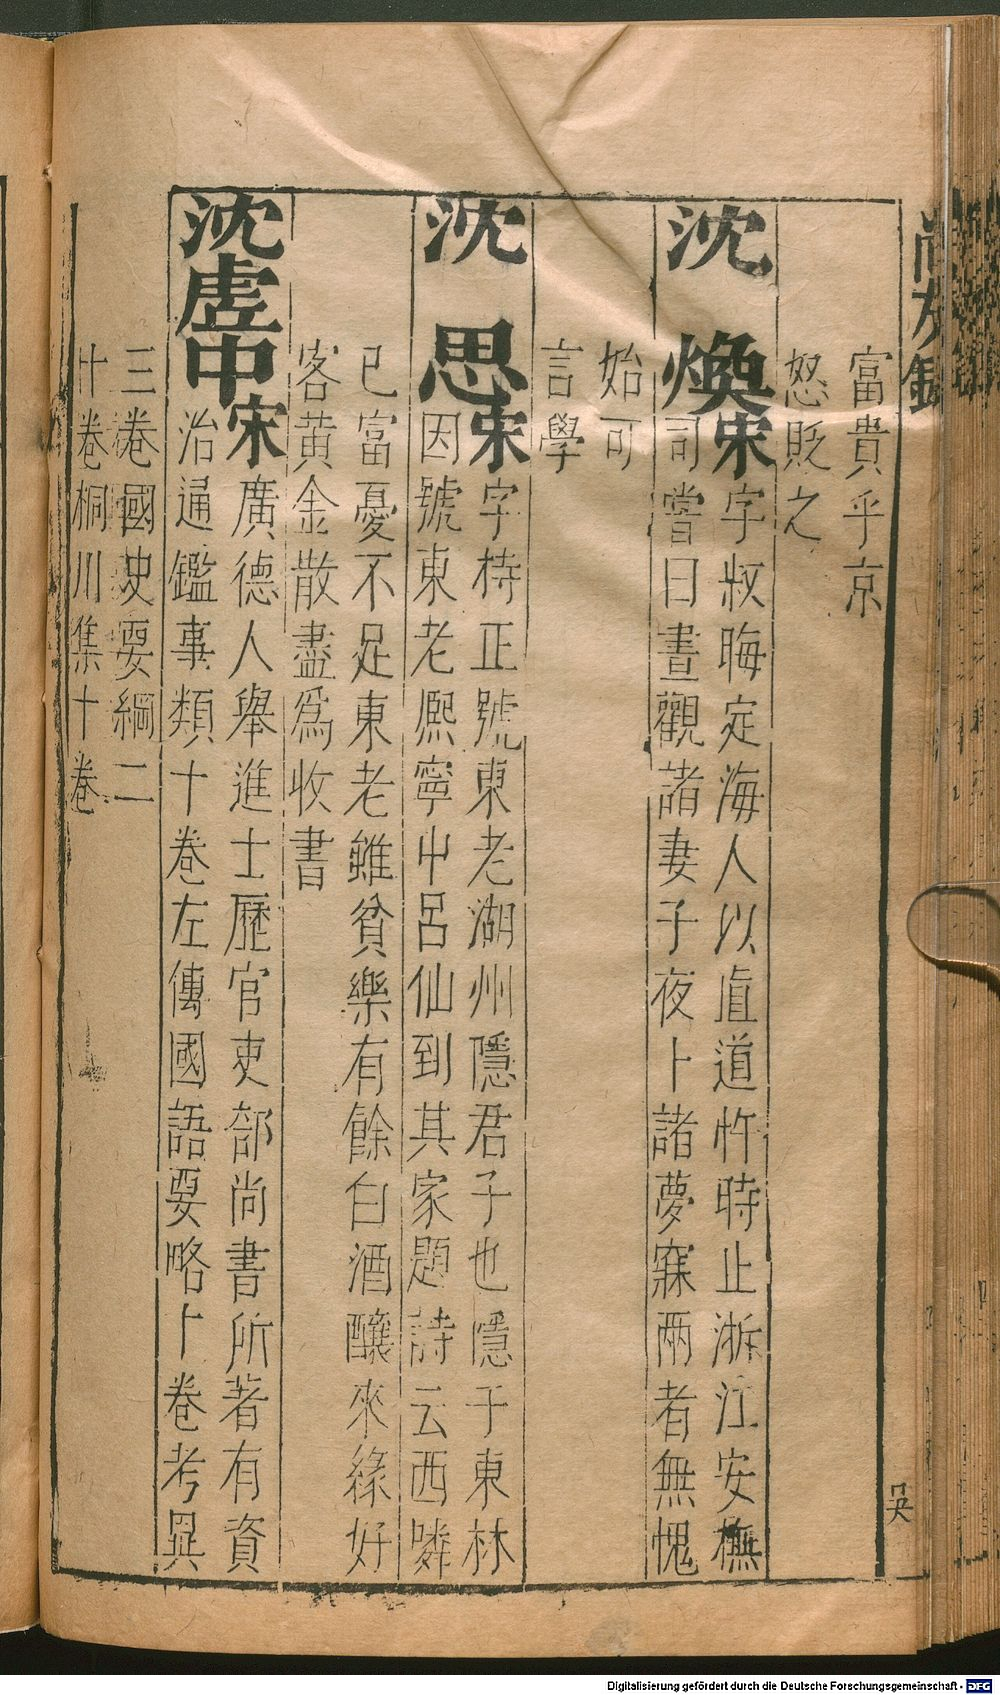 尚友錄
富貴乎京
怒貶之
沈煥宋字叔晦定海人以直道忤時止浙江安撫
司嘗曰晝觀諸妻子夜卜諸夢寐兩者無愧
始可
言學
沈思宋字持正號東老湖州隱君子也隱于東林
因號東老熈寧中呂仙到其家題詩云西隣
已富憂不足東老雖貧樂有餘白酒釀來緣好
客黄金散盡爲收書
沈虗中宋廣德人舉進士歷官吏部尚書所著有資
治通鑑事類十卷左傳國語要略卜卷考異
三卷國史要綱二
十卷桐川集十卷
吳
Digitalisierung gefördert durch die Deutsche Forschungsgemeinschaft - DFG